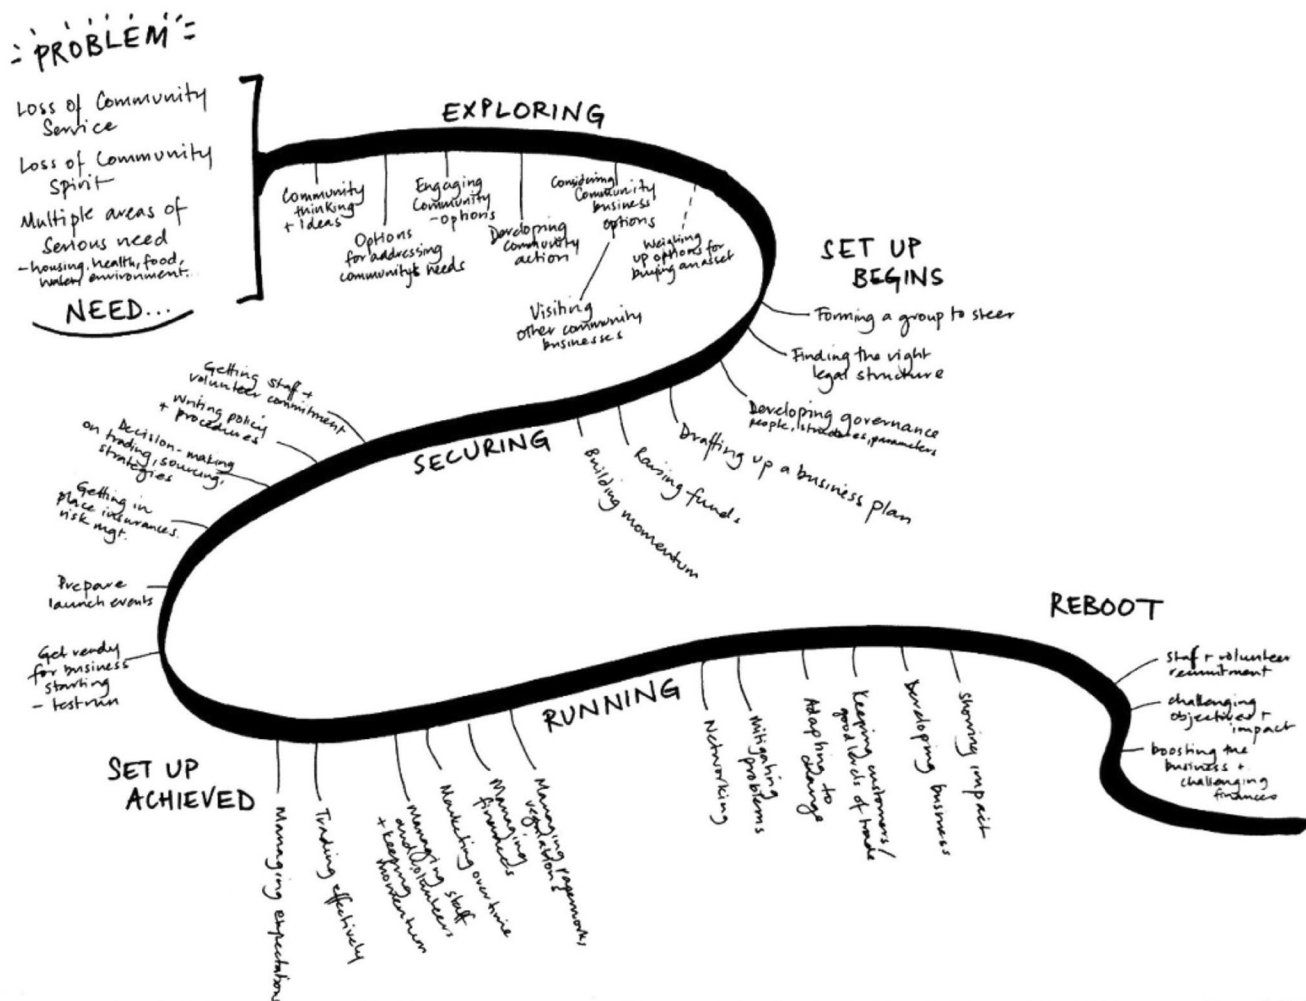 PROBLEM
Loss of Community
Service
Loss of Community
Spirit
Multiple areas of
serious need
-housing, health, food,
water, environment...
NEED...
EXPLORING
Community
thinking
+ Ideas
Options
for addressing
community's needs
Engaging
Community
-options
Developing
community
action
Considering
Community
business
options
Visiting
other community
businesses
Weighing
up options for
buying an asset
SET UP
BEGINS
Forming a group to steer
Finding the right
legal structure
Developing governance
people, structures, parameters
Drafting up a business plan
Raising funds
Building momentum
SECURING
Getting staff +
volunteer commitment
Writing policy
+ procedures
Decision-making
on trading, sourcing,
strategies
Getting in
place insurances.
risk mgt.
Prepare
launch events
Get ready
for business
starting
- test run
SET UP
ACHIEVED
Managing expectation
Trading effectively
Managing staff
and volunteers
+ keeping
momentum
Marketing overtime
Managing
finances
Managing paperwork,
regulations
RUNNING
Networking
Mitigating
problems
Adapting to
change
Keeping customers/
good levels of trade
Developing business
Showing impact
REBOOT
staff + volunteer
recruitment
challenging
objectives +
impact
boosting the
business +
challenging
finances